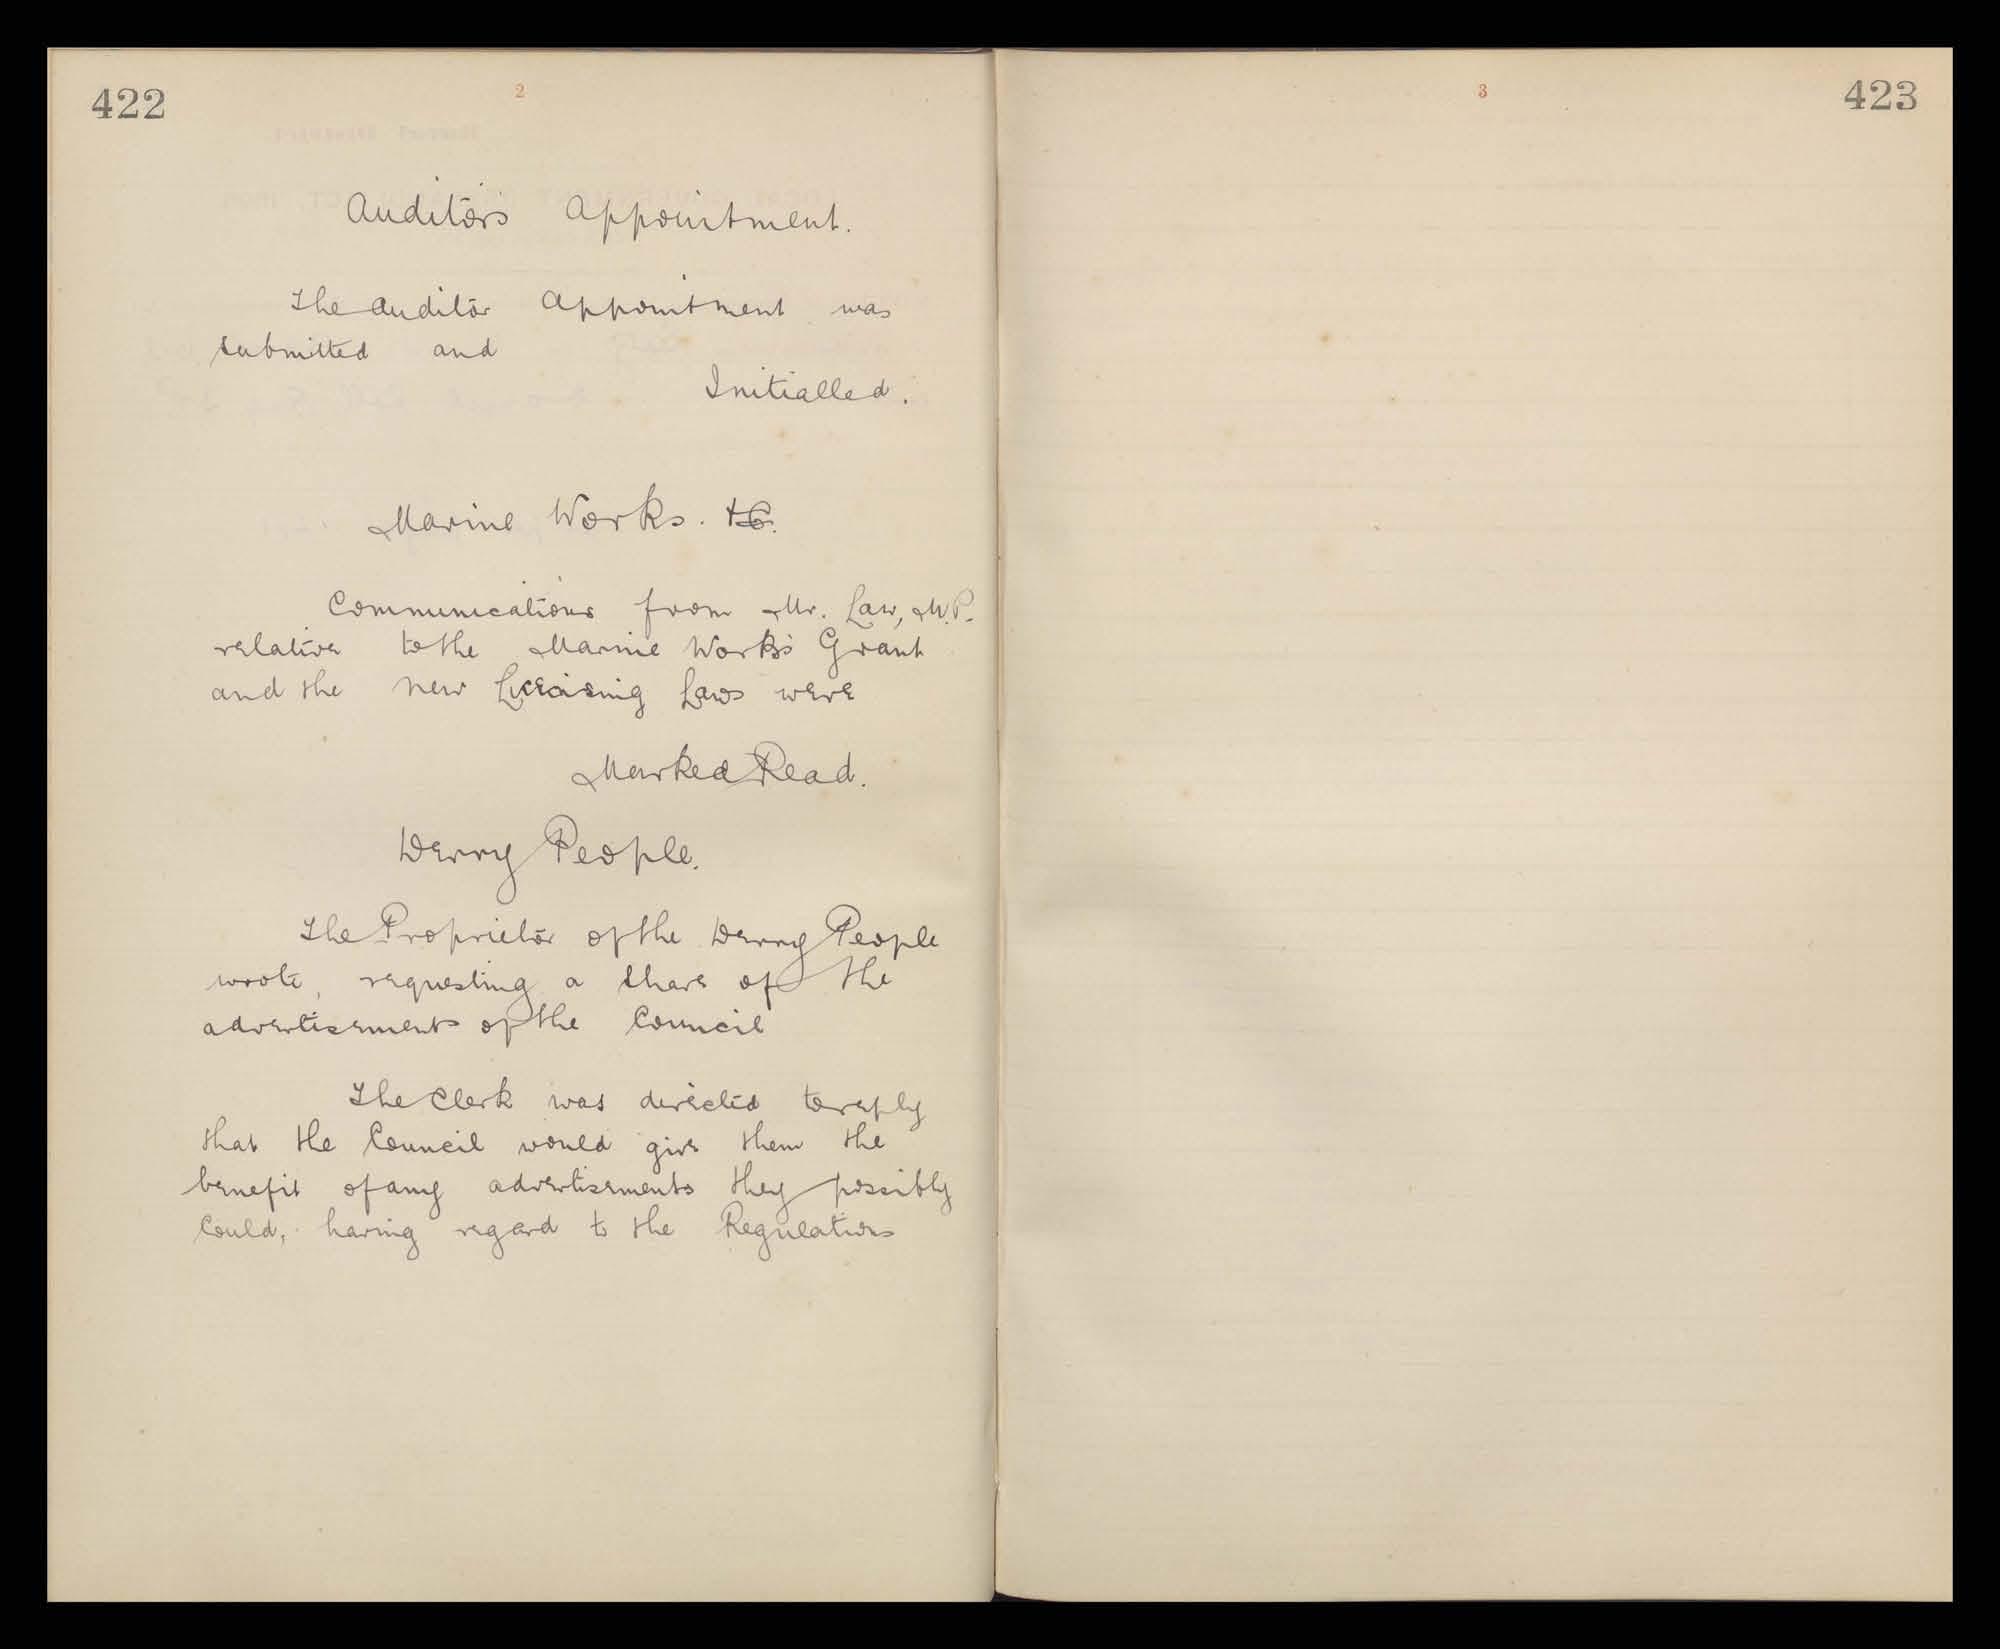 422
2
Auditor's Appointment.
The Auditor Appointment was
submitted and
Initialled.
Marine Works. &c.
Communications from Mr. Law, M.P.
relative to the Marine Works Grant
and the new Licensing Laws were
Marked Read.
Derry People.
The Proprietor of the Derry People
wrote, requesting a share of the
advertisements of the Council
The Clerk was directed to reply
that the Council would give them the
benefit of any advertisements they possibly
could, having regard to the Regulations
3
423